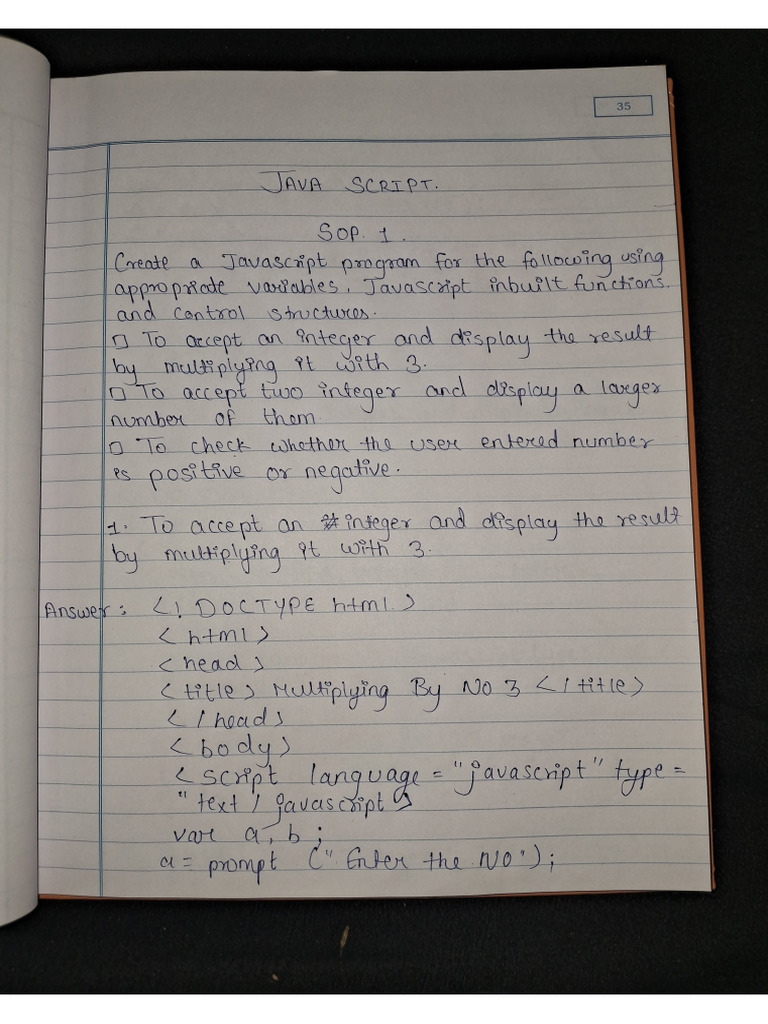 35
JAVA SCRIPT.
SOP. 1.
Create a Javascript program for the following using
appropriate variables, Javascript inbuilt functions.
and control structures.
□ To accept an integer and display the result
by multiplying it with 3.
□ To accept two integer and display a larger
number of them
□ To check whether the user entered number
is positive or negative.
1. To accept an integer and display the result
by multiplying it with 3.
Answer: <! DOCTYPE html>
<html>
<head>
<title> Multiplying By No 3 </title>
</head>
<body>
<script language = "javascript" type =
"text / javascript>
var a, b ;
a = prompt ("Enter the No");